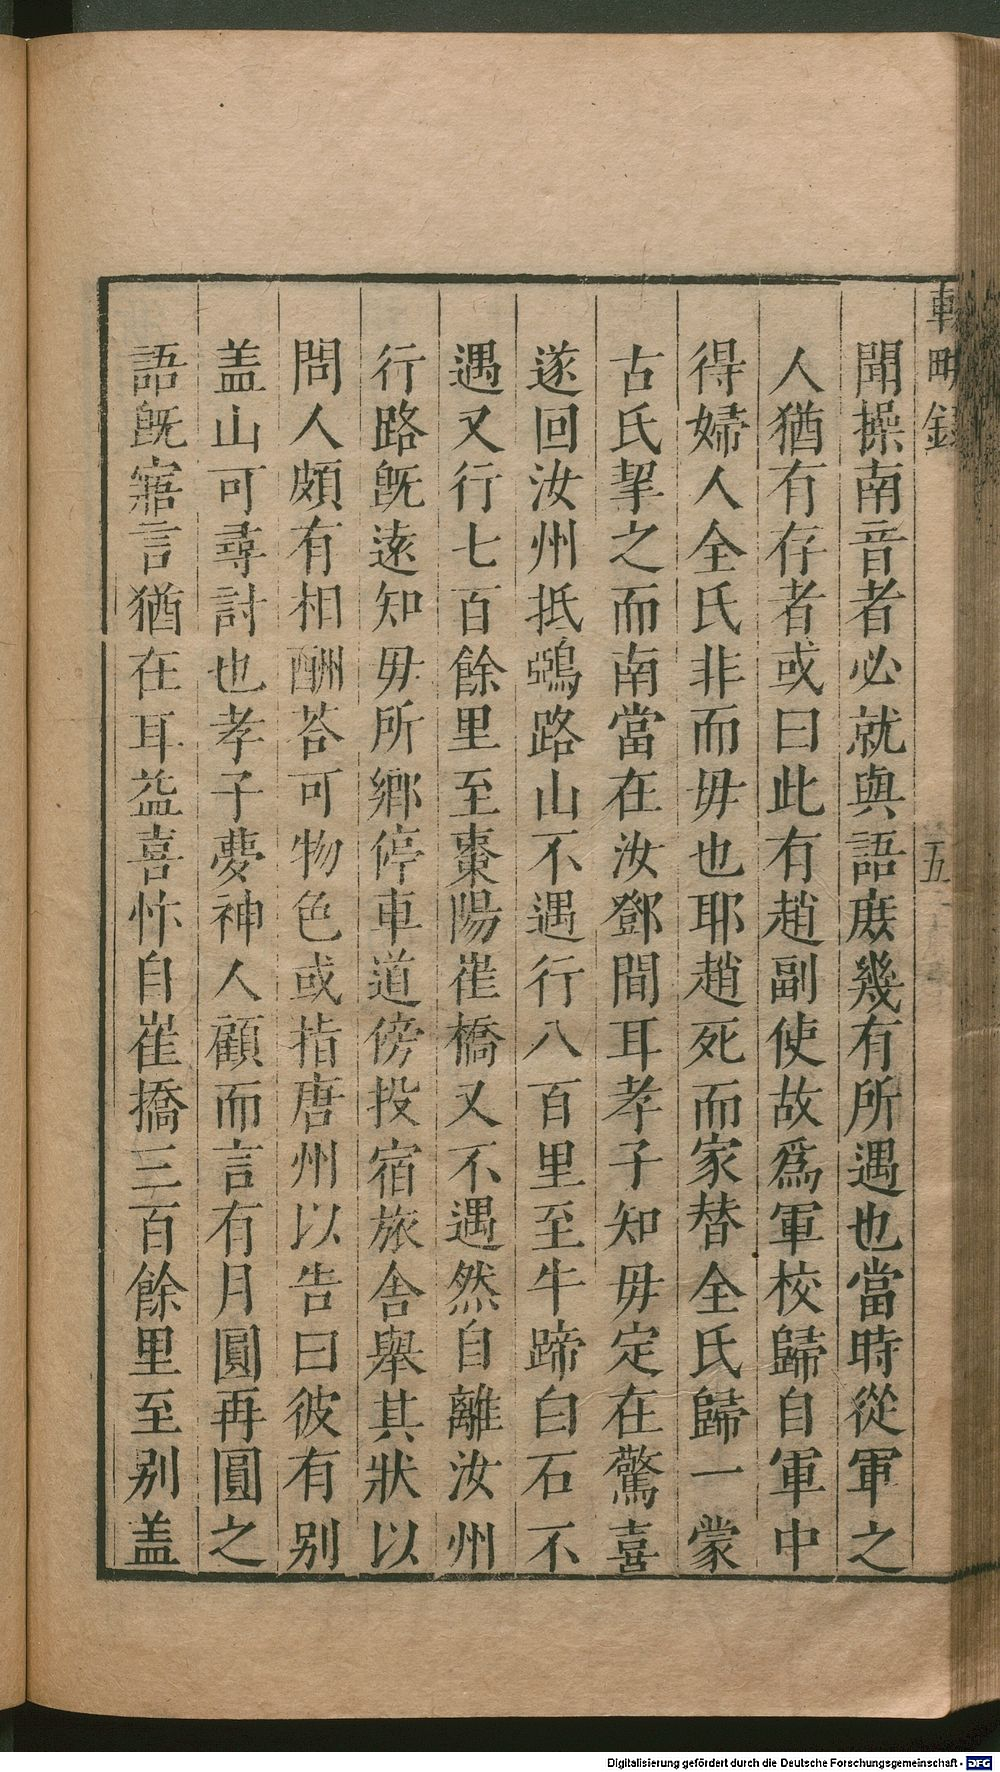 輟畊錄
五
聞操南音者必就與語庻幾有所遇也當時從軍之
人猶有存者或曰此有趙副使故爲軍校歸自軍中
得婦人全氏非而毋也耶趙死而家替全氏歸一蒙
古氏挈之而南當在汝鄧間耳孝子知毋定在驚喜
遂回汝州抵鵶路山不遇行八百里至牛蹄白石不
遇又行七百餘里至棗陽崔橋又不遇然自離汝州
行路旣逺知毋所鄉停車道傍投宿旅舎舉其狀以
問人頗有相酬荅可物色或指唐州以告曰彼有别
盖山可尋討也孝子夢神人顧而言有月圓再圓之
語旣寤言猶在耳益喜忭自崔撟三百餘里至别盖
Digitalisierung gefördert durch die Deutsche Forschungsgemeinschaft - DFG